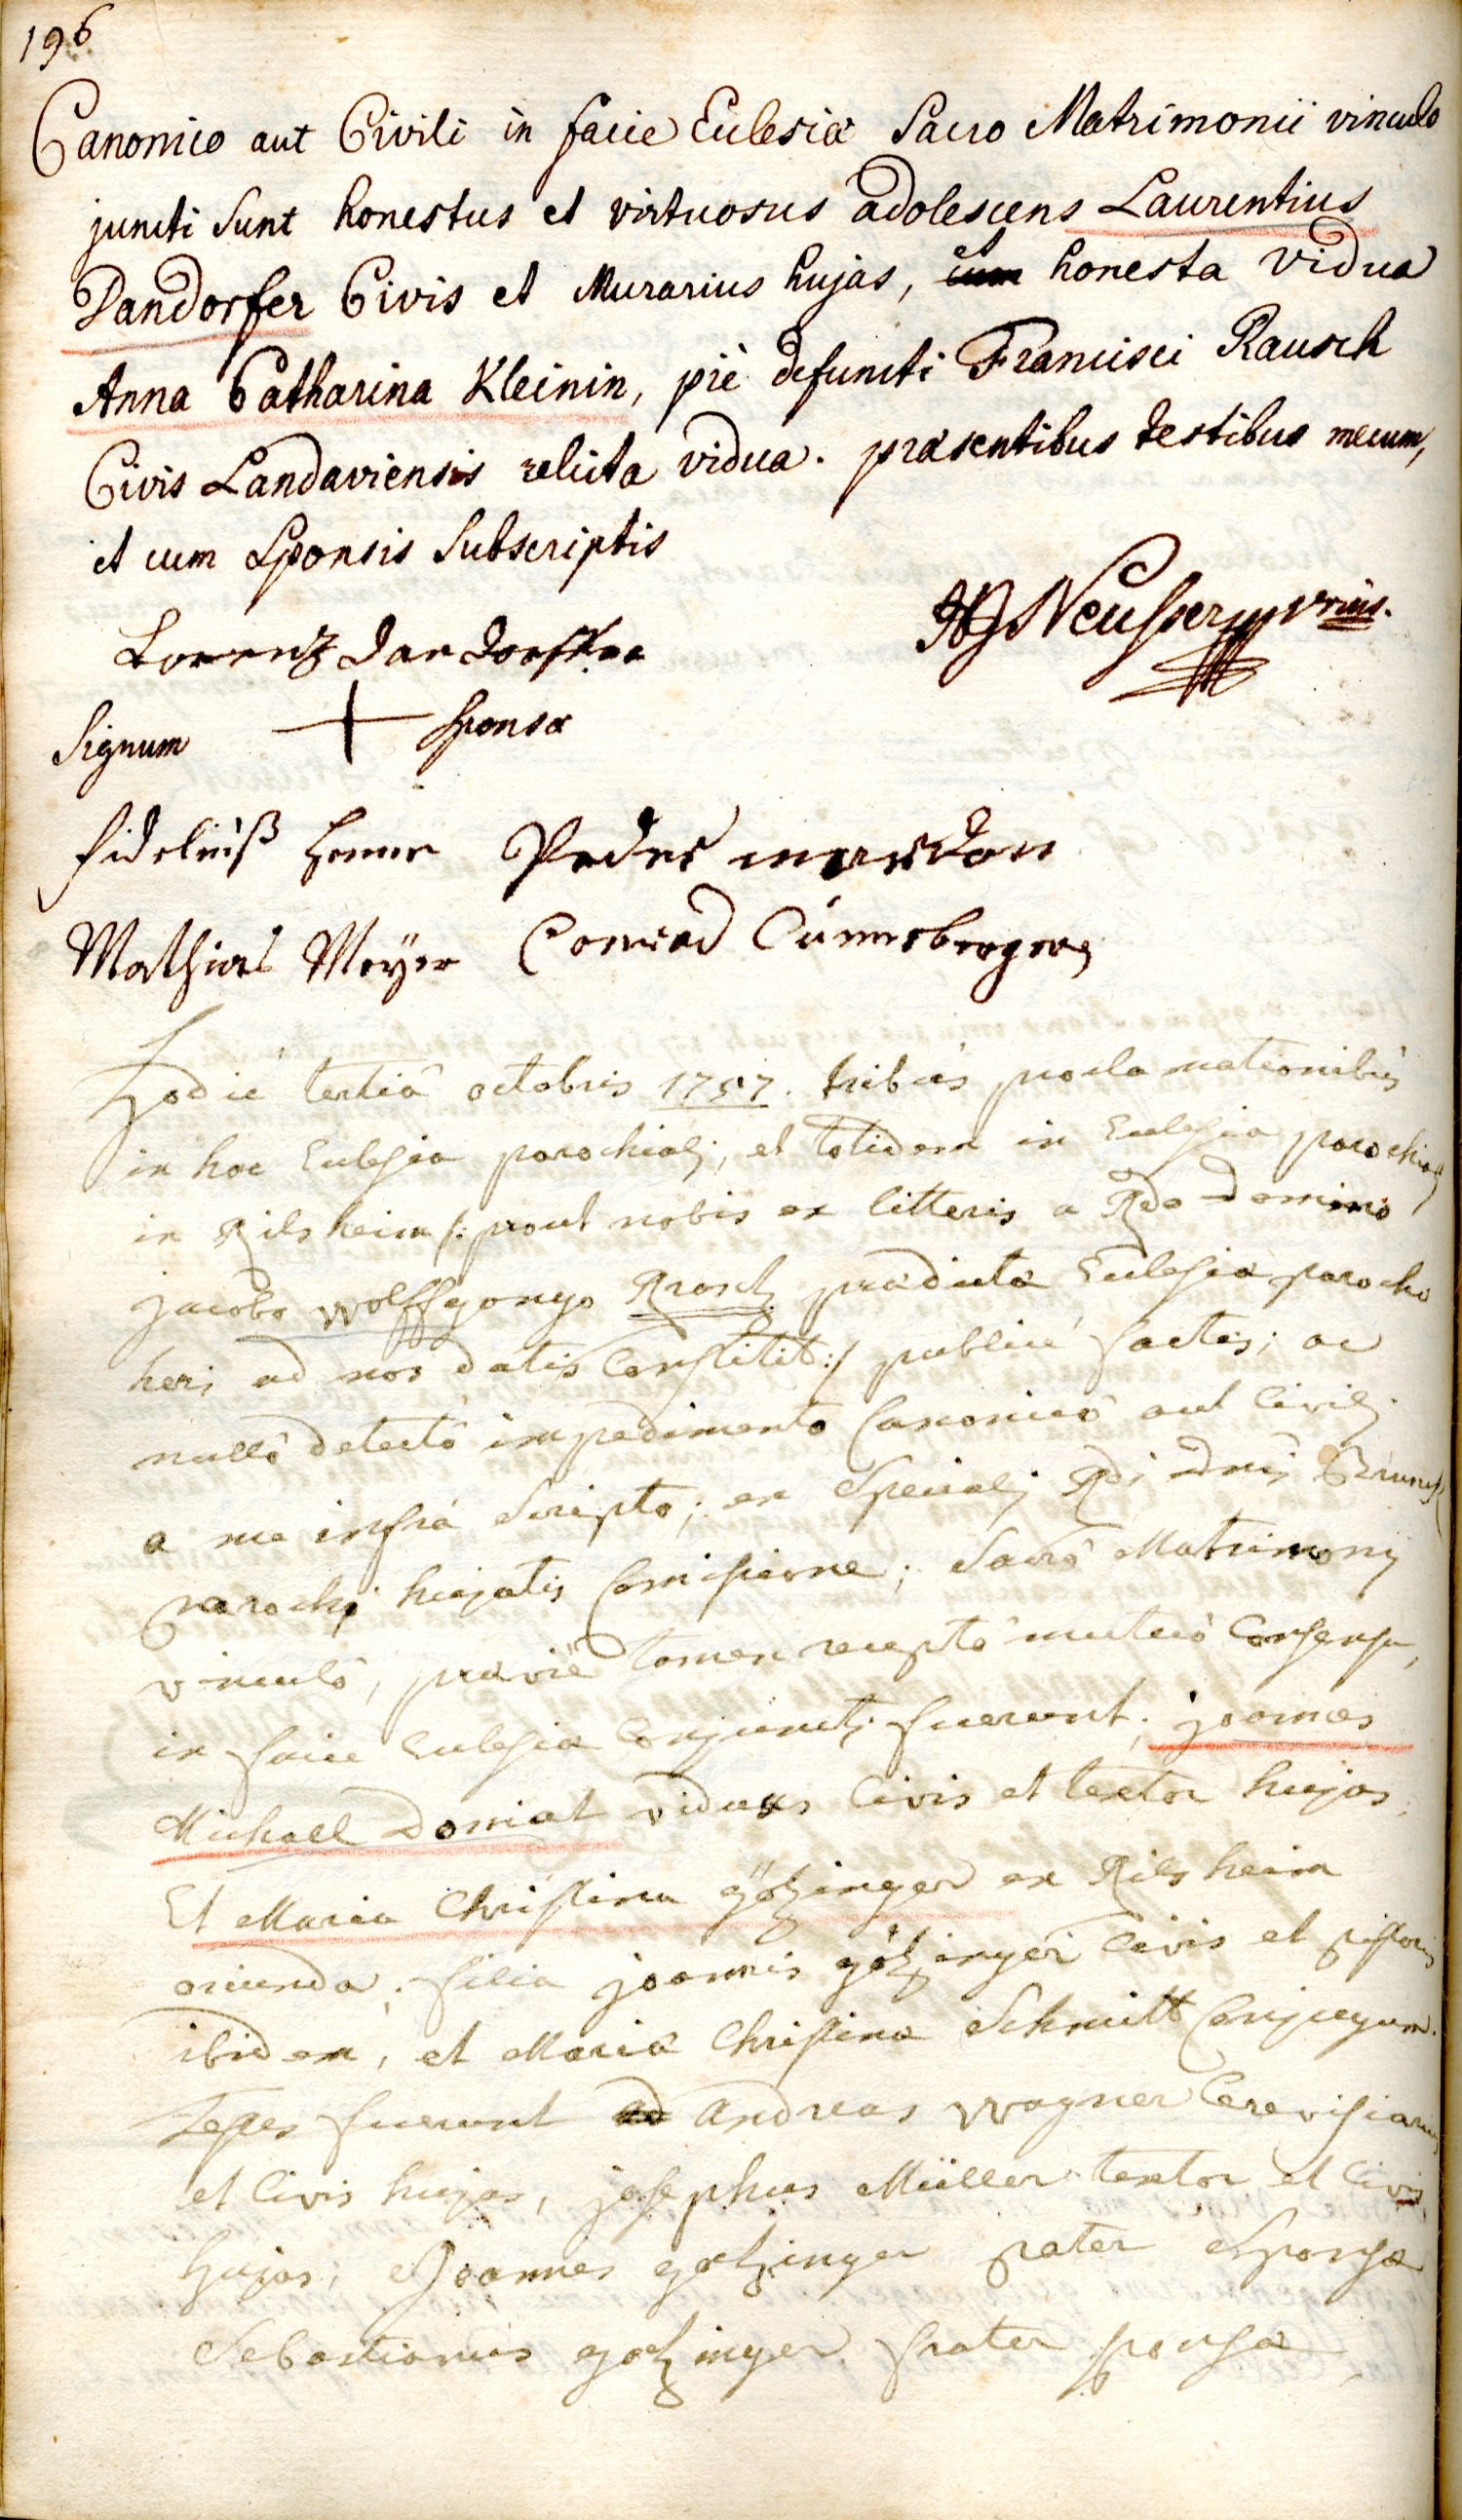 196
Canonico aut Civili in facie Ecclesiæ Sacro Matrimonii vinculo
juncti Sunt honestus et virtuosus adolescens Laurentius
Dandorfer Civis et Murarius hujas, et honesta vidua
Anna Catharina Kleinin, piè defuncti Francisci Rausch
Civis Landaviensis relicta vidua. præsentibus testibus mecum,
et cum Sponsis Subscriptis
Lorentz dandorffer
Signum + Sponsæ
fideliuß Peder
Mathias Meÿer Conrad
Hodiè tertiâ octobris 1757. tribùs proclamationibùs
in hac Ecclesia parochiali, et totidem in Ecclesia parochiali
in Rilsheim /: prout nobis ex litteris a Rdo Domino
jacobo Wolffgango prædictæ Ecclesiæ parocho
heri ad nos datis Constitit :/ publicè factis; ac
nullô detectô impedimento Canonicô aut Civili
a me infrà Scripto; ex Speciali Rdi Dni
parochi hujatis Comissione; Sacrô Matrimonij
vinculô, præviè tamen receptô mutuô Consensu,
in facie Ecclesiæ Conjuncti fuerunt. joannes
Michael Domiat viduus Civis et textor hujas,
Et Maria Christina götzinger ex Rilsheim
oriunda; filia joannis götzinger Civis et pistoris
ibidem, et Mariæ Christinæ Schmitt Conjugum.
Testes fuerunt Andreas Wagner Cerevisiarius
et Civis hujas, josephus Müller textor et Civis
hujas; et Joannes götzinger pater Sponsæ
Sebastianus götzinger frater sponsæ,